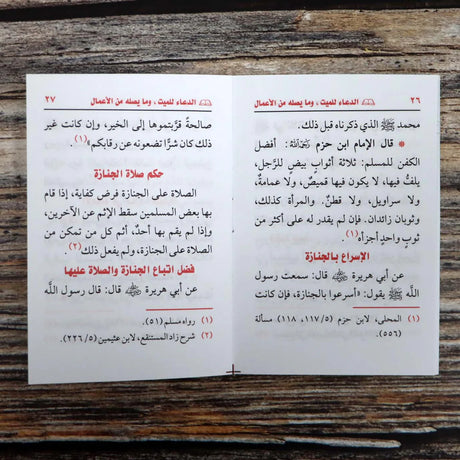 ٢٦ الدعاء للميت ، وما يصله من الأعمال
محمد ﷺ الذي ذكرناه قبل ذلك.
* قال الإمام ابن حزم رحمه الله: أفضل
الكفن للمسلم: ثلاثة أثواب بيض للرَّجل،
يلفُّ فيها، لا يكون فيها قميصٌ، ولا عمامةٌ،
ولا سراويل، ولا قطنٌ. والمرأة كذلك،
وثوبان زائدان. فإن لم يقدر له على أكثر من
ثوبٍ واحدٍ أجزأه(١).
الإسراع بالجنازة
عن أبي هريرة ﵁ قال: سمعت رسول
الله ﷺ يقول: «أسرعوا بالجنازة، فإن كانت
(١) المحلى، لابن حزم (٥/ ١١٧، ١١٨) مسألة
(٥٥٦).
الدعاء للميت ، وما يصله من الأعمال ٢٧
صالحةً قرَّبتموها إلى الخير، وإن كانت غير
ذلك كان شرًّا تضعونه عن رقابكم»(١).
حكم صلاة الجنازة
الصلاة على الجنازة فرض كفاية، إذا قام
بها بعض المسلمين سقط الإثم عن الآخرين،
وإذا لم يقم بها أحدٌ، أثم كل من تمكن من
الصلاة على الجنازة، ولم يفعل ذلك(٢).
فضل اتباع الجنازة والصلاة عليها
عن أبي هريرة ﵁ قال: قال رسول الله
(١) رواه مسلم (٥١).
(٢) شرح زاد المستقنع، لابن عثيمين (٥/ ٢٢٦).